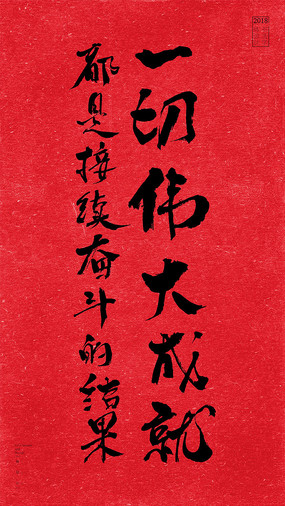 一切伟大成就
都是接续奋斗的结果
2018